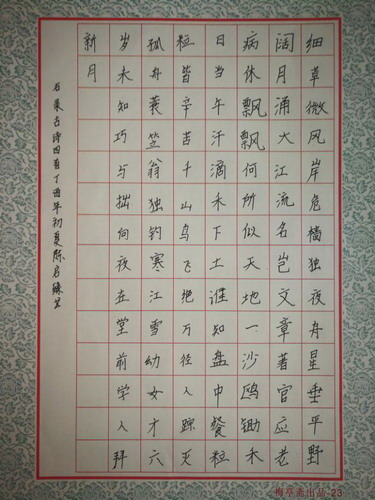 细草微风岸危樯独夜舟星垂平野
阔月涌大江流名岂文章著官应老
病休飘飘何所似天地一沙鸥锄禾
日当午汗滴禾下土谁知盘中餐粒
粒皆辛苦千山鸟飞绝万径人踪灭
孤舟蓑笠翁独钓寒江雪幼女才六
岁未知巧与拙向夜在堂前学人拜
新月
右录古诗四首丁酉年初夏陈
出品-23